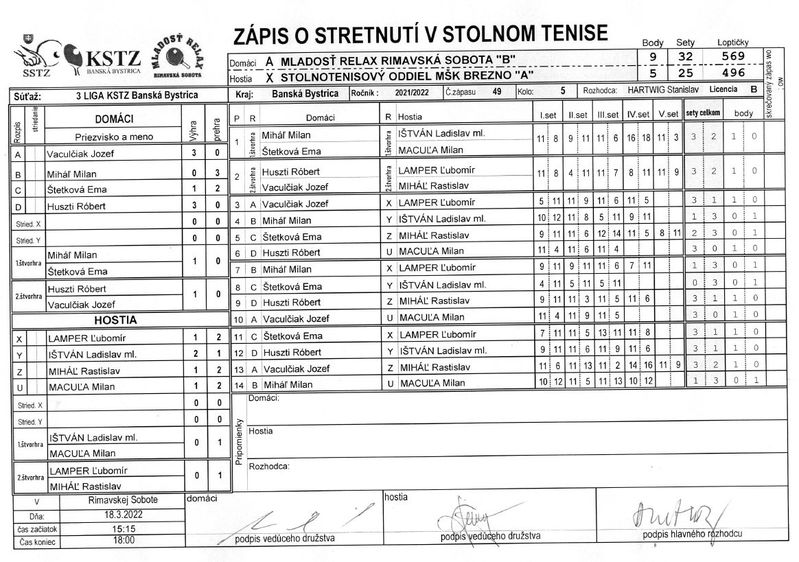 ZÁPIS O STRETNUTÍ V STOLNOM TENISE
SSTZ
KSTZ
BANSKÁ BYSTRICA
MLADOSŤ RELAX
RIMAVSKÁ SOBOTA
Body Sety Loptičky
Domáci A MLADOSŤ RELAX RIMAVSKÁ SOBOTA "B" 9 32 569
Hostia X STOLNOTENISOVÝ ODDIEL MŠK BREZNO "A" 5 25 496
Súťaž: 3 LIGA KSTZ Banská Bystrica Kraj: Banská Bystrica Ročník : 2021/2022 Č.zápasu 49 Kolo: 5 Rozhodca: HARTWIG Stanislav Licencia B
Rozpis striedanie DOMÁCI Výhra prehra
Priezvisko a meno
A Vaculčiak Jozef 3 0
B Miháľ Milan 0 3
C Štetková Ema 1 2
D Huszti Róbert 3 0
Stried. X 0 0
Stried. Y 0 0
1.štvorhra Miháľ Milan 1 0
Štetková Ema
2.štvorhra Huszti Róbert 1 0
Vaculčiak Jozef
HOSTIA
X LAMPER Ľubomír 1 2
Y IŠTVÁN Ladislav ml. 2 1
Z MIHÁĽ Rastislav 1 2
U MACUĽA Milan 1 2
Stried. X 0 0
Stried. Y 0 0
1.štvorhra IŠTVÁN Ladislav ml. 0 1
MACUĽA Milan
2.štvorhra LAMPER Ľubomír 0 1
MIHÁĽ Rastislav
V Rimavskej Sobote
Dňa: 18.3.2022
čas začiatok 15:15
Čas koniec 18:00
P R Domáci R Hostia I.set II.set III.set IV.set V.set sety celkom body
1 1.štvorhra Miháľ Milan 1.štvorhra IŠTVÁN Ladislav ml. 11 8 9 11 11 6 16 18 11 3 3 2 1 0
Štetková Ema MACUĽA Milan
2 2.štvorhra Huszti Róbert 2.štvorhra LAMPER Ľubomír 11 8 4 11 11 7 8 11 11 9 3 2 1 0
Vaculčiak Jozef MIHÁĽ Rastislav
3 A Vaculčiak Jozef X LAMPER Ľubomír 5 11 11 9 11 6 11 5 3 1 1 0
4 B Miháľ Milan Y IŠTVÁN Ladislav ml. 10 12 11 8 5 11 9 11 1 3 0 1
5 C Štetková Ema Z MIHÁĽ Rastislav 9 11 11 6 12 14 11 5 8 11 2 3 0 1
6 D Huszti Róbert U MACUĽA Milan 11 4 11 6 11 4 3 0 1 0
7 B Miháľ Milan X LAMPER Ľubomír 9 11 9 11 11 6 7 11 1 3 0 1
8 C Štetková Ema Y IŠTVÁN Ladislav ml. 4 11 5 11 5 11 0 3 0 1
9 D Huszti Róbert Z MIHÁĽ Rastislav 9 11 11 3 11 5 11 6 3 1 1 0
10 A Vaculčiak Jozef U MACUĽA Milan 11 4 11 9 11 5 3 0 1 0
11 C Štetková Ema X LAMPER Ľubomír 7 11 11 5 13 11 11 8 3 1 1 0
12 D Huszti Róbert Y IŠTVÁN Ladislav ml. 9 11 11 6 11 9 11 6 3 1 1 0
13 A Vaculčiak Jozef Z MIHÁĽ Rastislav 11 6 11 13 11 2 14 16 11 9 3 2 1 0
14 B Miháľ Milan U MACUĽA Milan 10 12 11 5 11 13 10 12 1 3 0 1
Pripomienky
Domáci:
Hostia
Rozhodca:
domáci
podpis vedúceho družstva
hostia
podpis vedúceho družstva
podpis hlavného rozhodcu